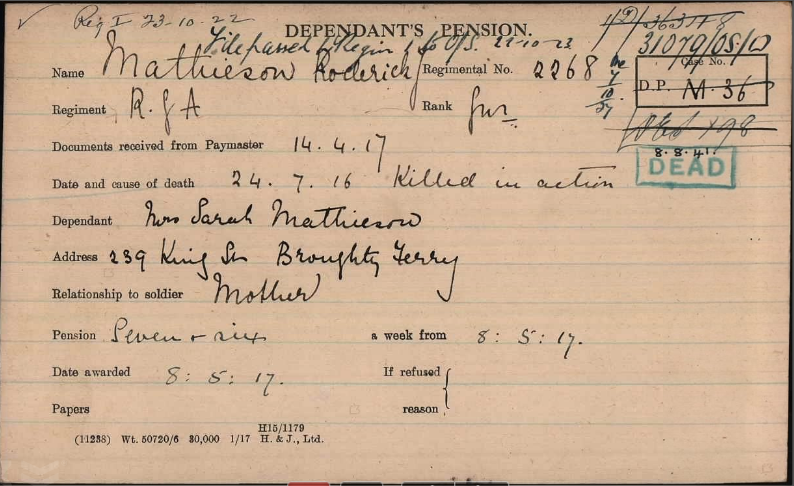 Reg I 23-10-22
DEPENDANT'S PENSION.
File passed to Region 1, to O/S. 22-10-23
31079/OS/W
Case No.
D.P. M. 36
Name Mathieson Roderick Regimental No. 2268
Regiment R.G.A Rank Gnr
Documents received from Paymaster 14.4.17
8.8.41.
DEAD
Date and cause of death 24.7.16 Killed in action
Dependant Mrs Sarah Mathieson
Address 239 King St Broughty Ferry
Relationship to soldier Mother
Pension Seven + six a week from 8:5:17.
Date awarded 8:5:17. If refused
Papers reason
H15/1179
(11238) Wt. 50720/6 30,000 1/17 H. & J., Ltd.